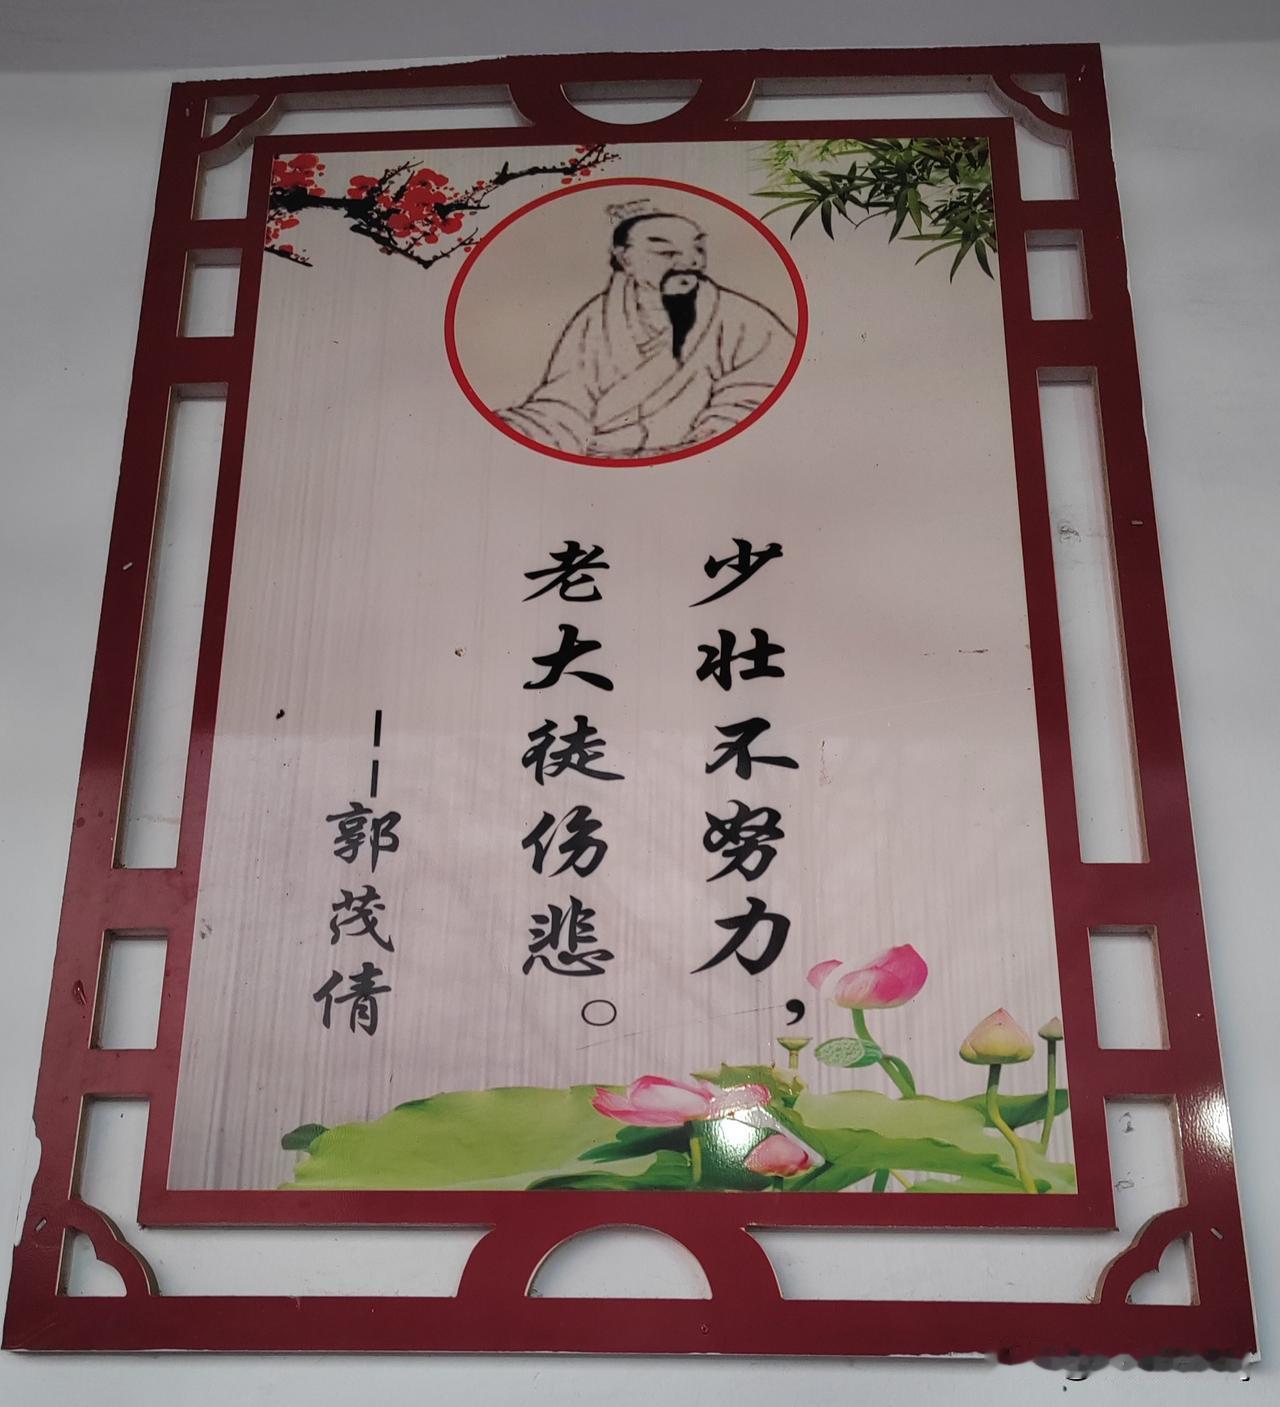 少壮不努力，
老大徒伤悲。
——郭茂倩